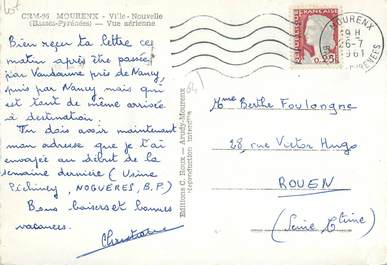 CRM-96 MOURENX - Ville-Nouvelle
(Basses-Pyrénées) - Vue aérienne
Bien reçu ta lettre ce
matin après être passée
par Vandœuvre près de Nancy
puis par Nancy mais qui
est tout de même arrivée
à destination.
Tu dois avoir maintenant
mon adresse que je t'ai
envoyée au début de la
semaine dernière (Usine
Péchiney, NOGUÈRES, B.P.)
Bons baisers et bonnes
vacances.
Christiane
Editions C. Roux - Arudy-Mourenx
reproduction interdite
64
MOURENX
19 H
26-7
1961
PYRENEES
FRANÇAISE
0,25
Mme Berthe Foulongne
28, rue Victor Hugo
ROUEN
(Seine Mme)